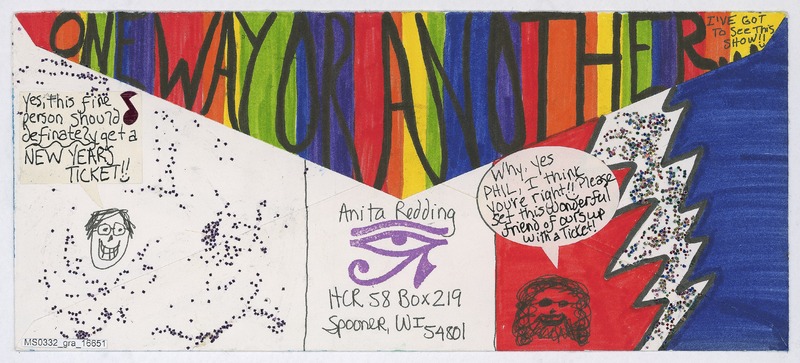 ONE WAY OR ANOTHER...
I'VE GOT
To See This
SHOW!!
Yes, this fine
person should
definately get a
NEW YEARS
TICKET!!
Why, yes
PHIL, I think
you're right!! Please
set this wonderful
friend of ours up
with a Ticket!
Anita Redding
HCR 58 Box 219
Spooner, WI 54801
MS0332_gra_16651